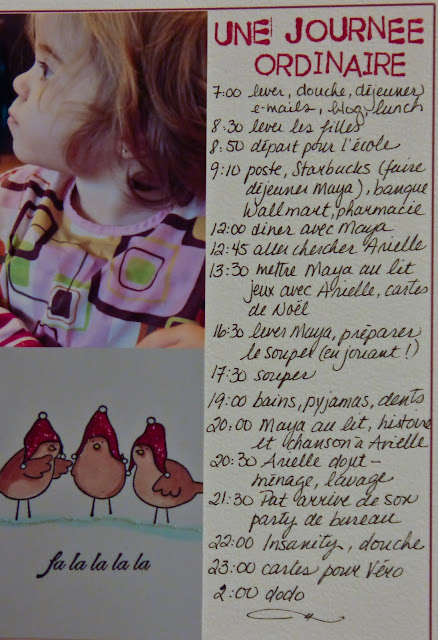 UNE JOURNEE
ORDINAIRE
7:00 lever, douche, déjeuner
e-mails, blog, lunch
8:30 lever les filles
8:50 départ pour l'école
9:10 poste, Starbucks (faire
déjeuner Maya), banque
Wallmart, pharmacie
12:00 dîner avec Maya
12:45 aller chercher Arielle
13:30 mettre Maya au lit
jeux avec Arielle, cartes
de Noël
16:30 lever Maya, préparer
le souper (en jouant!)
17:30 souper
19:00 bains, pyjamas, dents
20:00 Maya au lit, histoire
et chanson à Arielle
20:30 Arielle dort -
ménage, lavage
21:30 Pat arrive de son
party de bureau
22:00 Insanity, douche
23:00 cartes pour Véro
2:00 dodo
fa la la la la